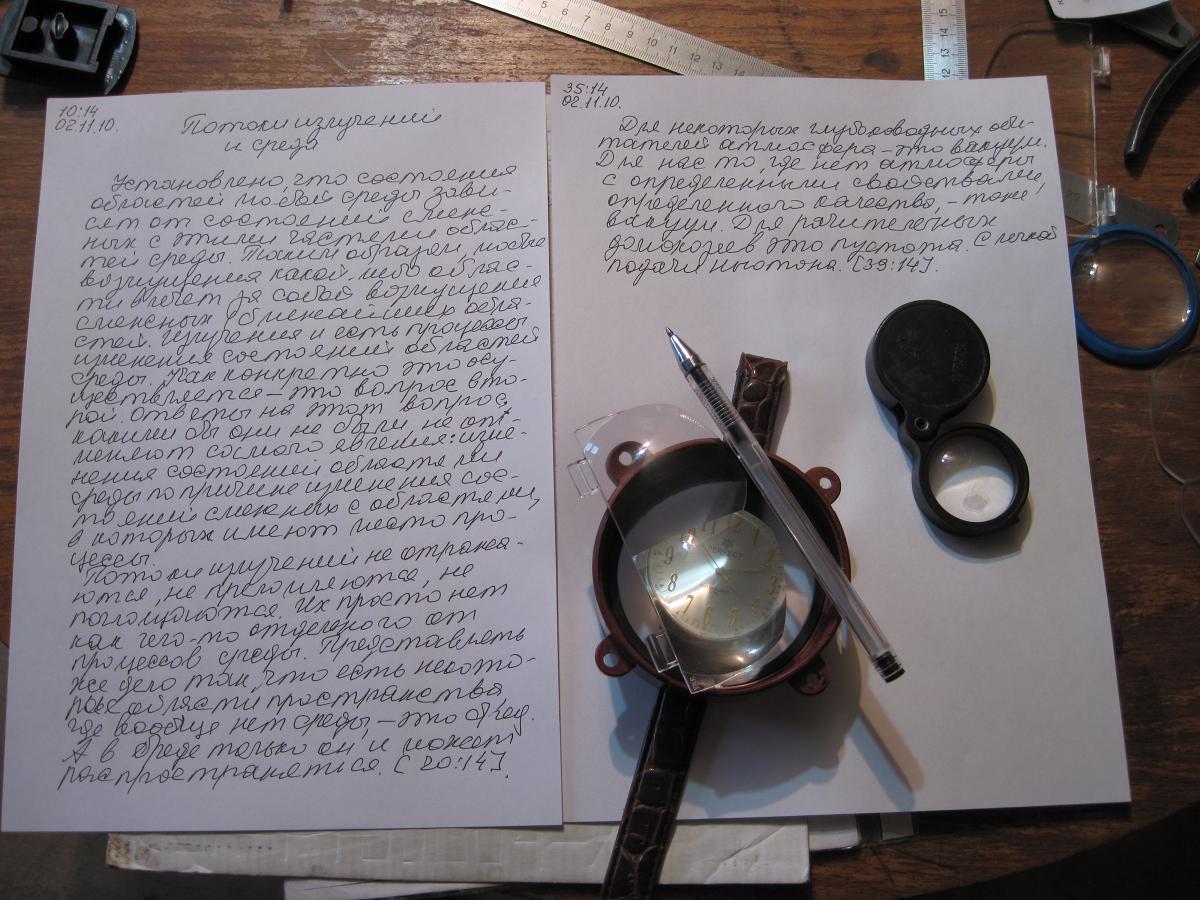 10:14
02.11.10.
Потоки излучений
и среда
Установлено, что состояния
областей любой среды зави-
сят от состояний смеж-
ных с этими частями облас-
тей среды. Таким образом, любые
возмущения какой-либо облас-
ти влечет за собой возмущения
смежных ближайших обла-
стей. Излучения и есть процессы
изменения состояний областей
среды. Как конкретно это осу-
ществляется – это вопрос вто-
рой. Ответы на этот вопрос,
какими бы они не были не от-
меняют самого явления: изме-
нения состояний областями
среды по причине изменения сос-
тояний смежных с областями,
в которых имеют место про-
цессы.
Потоки излучений не отража-
ются, не преломляются, не
поглощаются. Их просто нет
как чего-то отдельного от
процессов среды. Представлять
же дело так, что есть некото-
рые области пространства
где вообще нет среды, – это бред.
А в бреде только он и может
распространяться. [20:14].
35:14
02.11.10.
Для некоторых глубоководных оби-
тателей атмосфера – это вакуум.
Для нас то, где нет атмосферы
с определенными свойствами,
определенного качества, – тоже
вакуум. Для рачительных
домохозяев это пустота. С легкой
подачи Ньютона. [39:14].
5 6 7 8 9 10 11 12 13 14
15 14 13 12
12 1 2 7 8 9